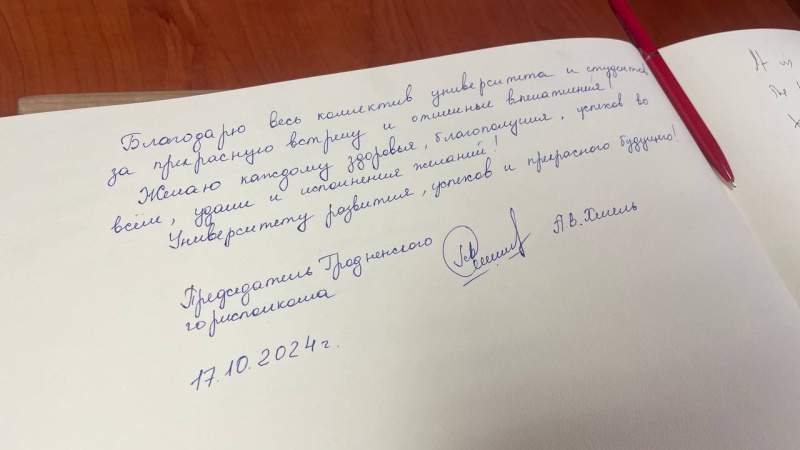 Благодарю весь коллектив университета и студентов
за прекрасную встречу и отличные впечатления!
Желаю каждому здоровья, благополучия, успехов во
всём, удачи и исполнения желаний!
Университету развития, успехов и прекрасного будущего!
Председатель Гродненского
горисполкома
А.В. Хмель
17.10.2024 г.
It is